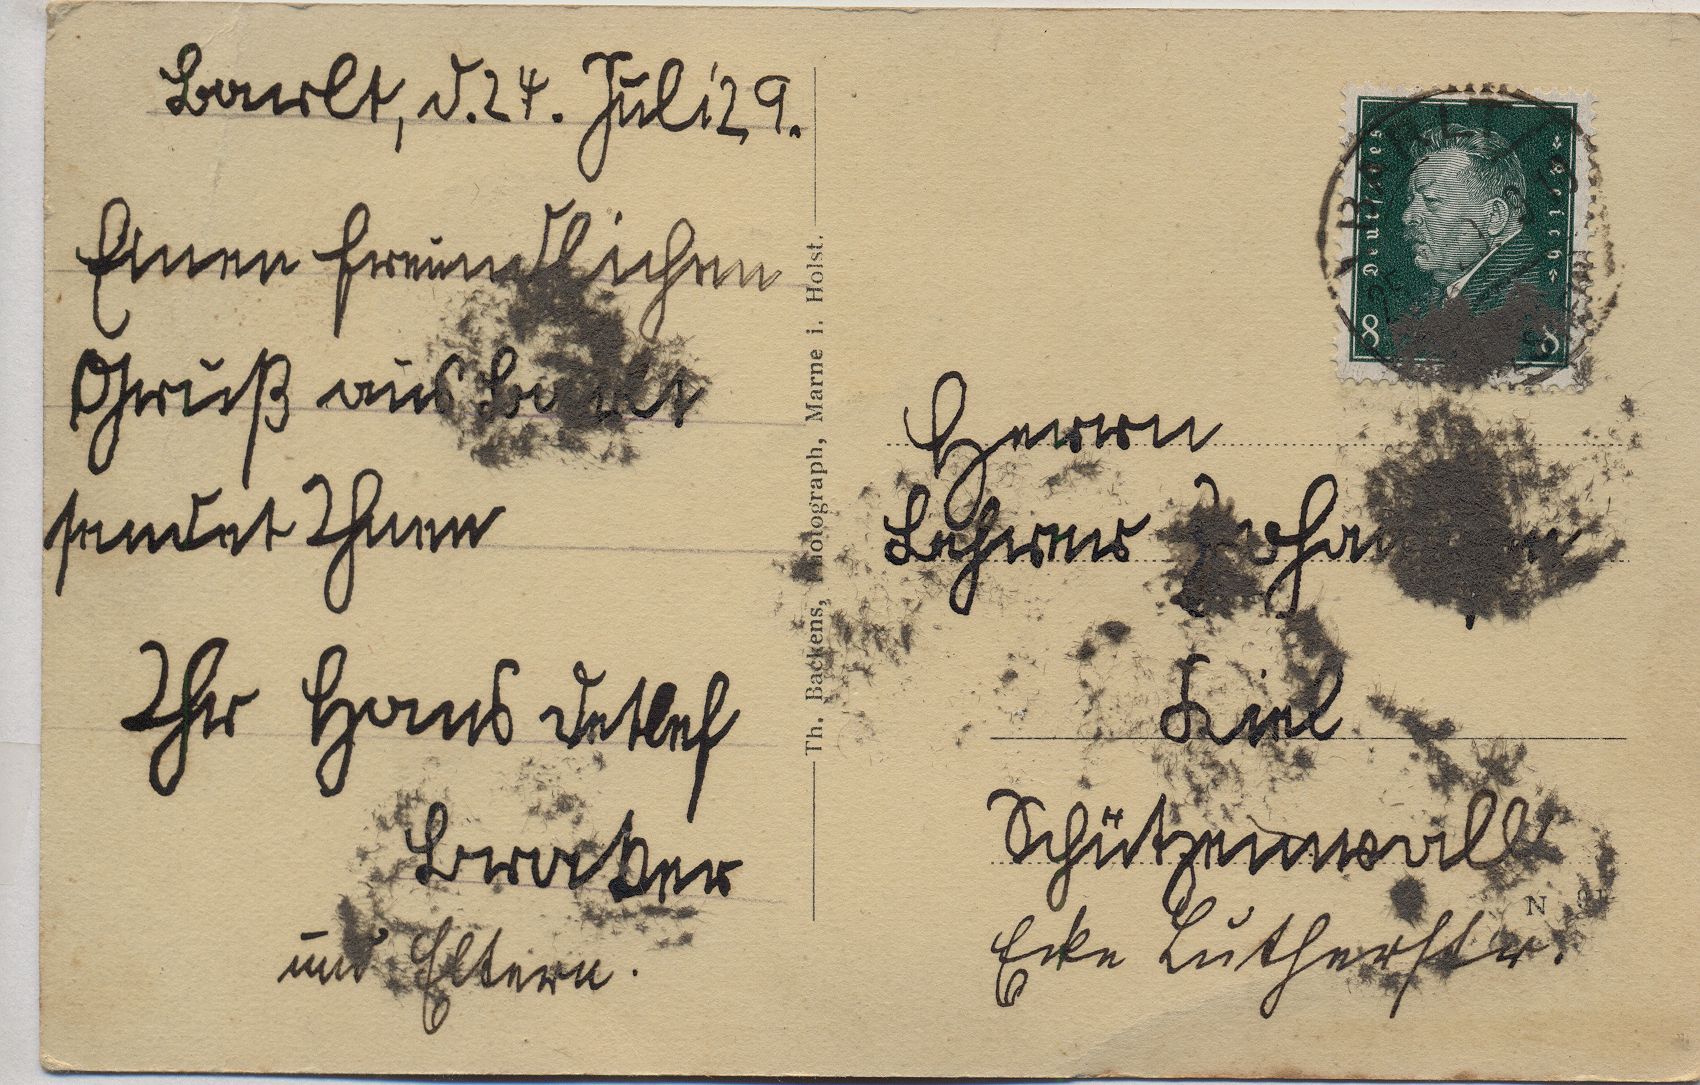 Barlt, d. 24. Juli 29.
Einen freundlichen
Gruß aus Barlt
sendet Ihnen
Ihr Hans Detlef
Braker
und Eltern.
Th. Backens, Photograph, Marne i. Holst.
Deutsches Reich
8 8
BARLT
Herrn
Lehrer
Kiel
Schützenwall
Ecke Lutherstr.
N